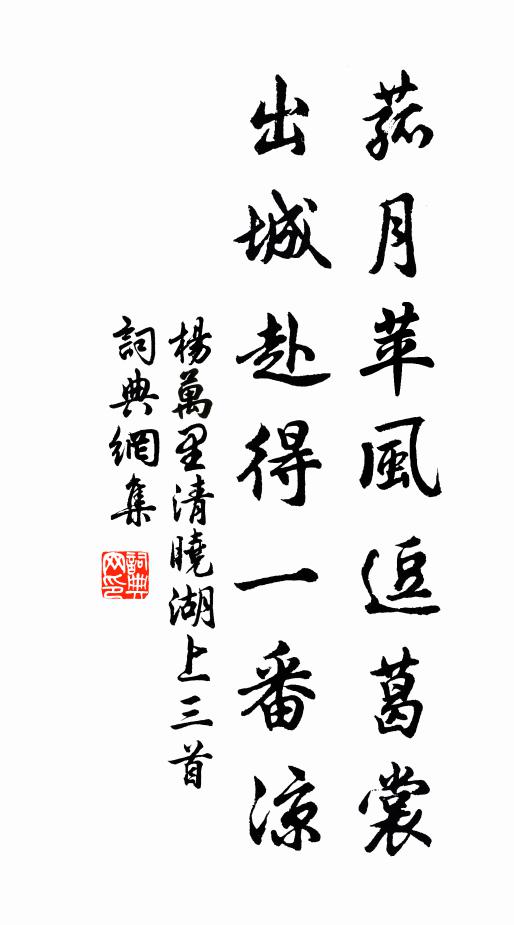 菰月苹風逗葛裳
出城赴得一番凉
楊萬里清曉湖上三首
詞典網集
詞典網印